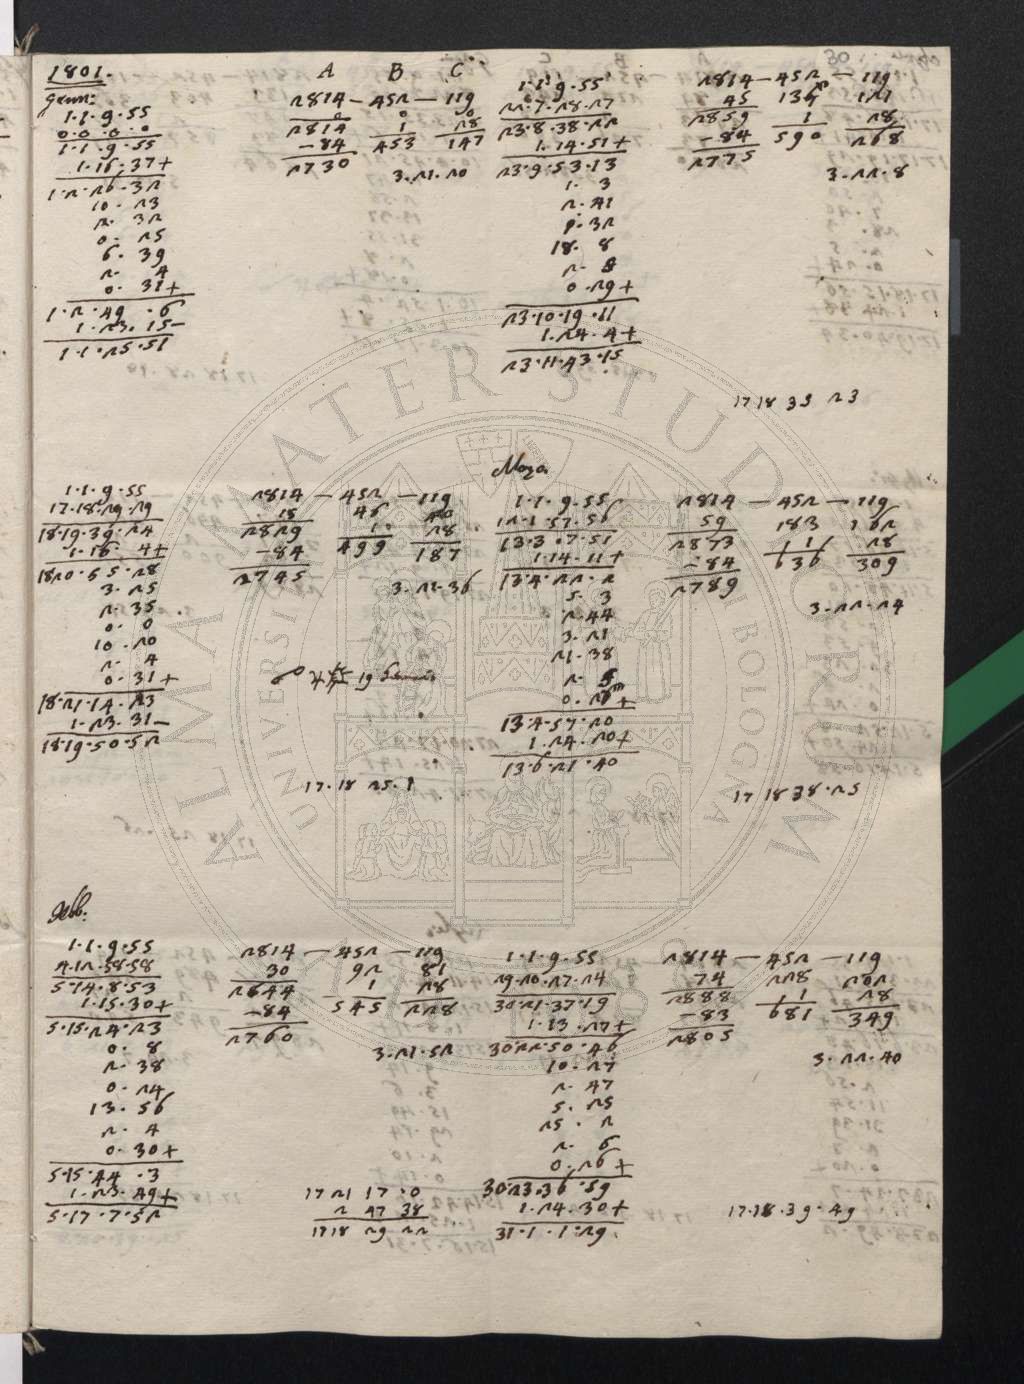 1801.
Genn:
1.1.9.55
0.0.0.0
1.1.9.55
1.16.37+
1.2.26.32
10.23
2.32
0.25
6.39
2.4
0.31+
1.2.49.6
1.23.15-
1.1.25.51
A B C
2814 - 452 - 119
0 0 0
2814 1 28
-84 453 147
2730
3.21.20
1.1.9.55
22.7.28.27
23.8.38.22
1.14.51+
23.9.53.13
1.3
2.41
18.8
2.5
0.29+
23.10.19.11
1.24.4+
23.11.43.15
2814 - 452 - 119
45 121
2859 1 28
-84 590 268
2775
3.22.8
17 18 33 23
1.1.9.55
17.18.29.29
18.19.39.24
1.16.4+
18 20.55.28
3.25
2.35
0.0
10.20
2.4
0.31+
18.21.14.23
1.23.31-
18.19.50.52
2814 - 452 - 119
15 46
2829 1 28
-84 499 187
2745
3.21.36
19
17.18 25.1
Marzo
1.1.9.55
12.1.57.56
13.3.07.51
1.14.11+
13.4.22.2
5.3
2.44
3.21
21.38
2.5
13.4.57.20
1.24.20+
13.6.21.40
2814 - 452 - 119
59 183 162
2873 1 28
-84 636 309
2789
3.22.24
17 18 38.25
Febb:
1.1.9.55
4.12.58.58
5.14.8.53
1.15.30+
5.15.24.23
0.8
2.38
0.24
13.56
2.4
0.30+
5.15.44.3
1.23.49+
5.17.7.52
2814 - 452 - 119
30 92 81
2844 1 28
-84 545 228
2760
3.21.52
17 21 17.0
2 47 38
17 18 29 22
1.1.9.55
29.20.27.24
30.21.37.19
1.13.27+
30 22.50.46
10.27
2.47
5.25
25.2
2.6
0.26+
30.23.36.59
1.24.30+
31.1.1.29
2814 - 452 - 119
74 228 202
2888 1 28
-83 681 349
2805
3.22.40
17.18.39.49
ALMA MATER STUDIORUM
UNIVERSITÀ DI BOLOGNA